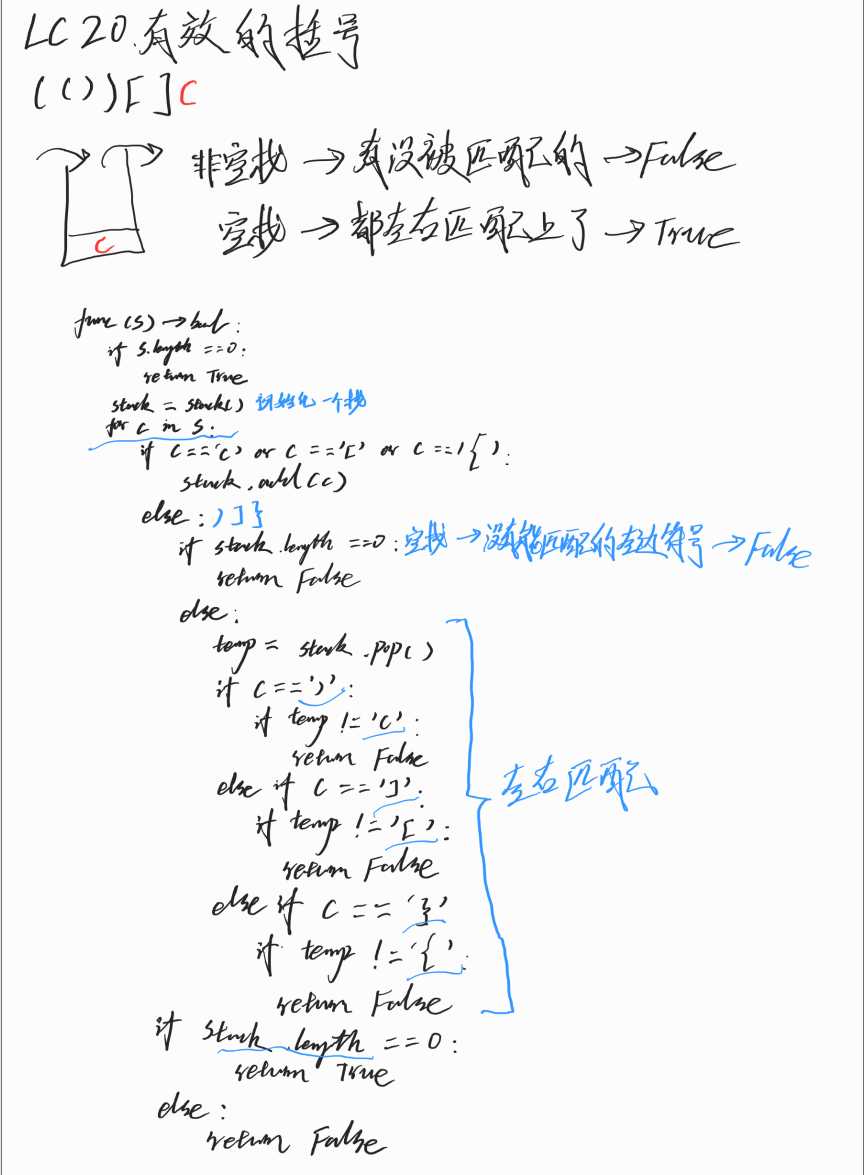 LC 20.有效的括号
(())[](
(
非空栈 → 有没被匹配的 → False
空栈 → 都左右匹配上了 → True
func (s) → bool :
if s.length ==0:
return True
stack = stack() 初始化一个栈
for c in s:
if c=='(' or c=='[' or c=='{':
stack.add(c)
else : ) ] }
if stack.length ==0: 空栈 → 没有能匹配的左边符号 → False
return False
else:
temp = stack.pop()
if c==')':
if temp !='(':
return False
else if c==']':
if temp !='[':
return False
else if c=='}'
if temp !='{':
return False
左右匹配
if stack.length ==0:
return True
else:
return False